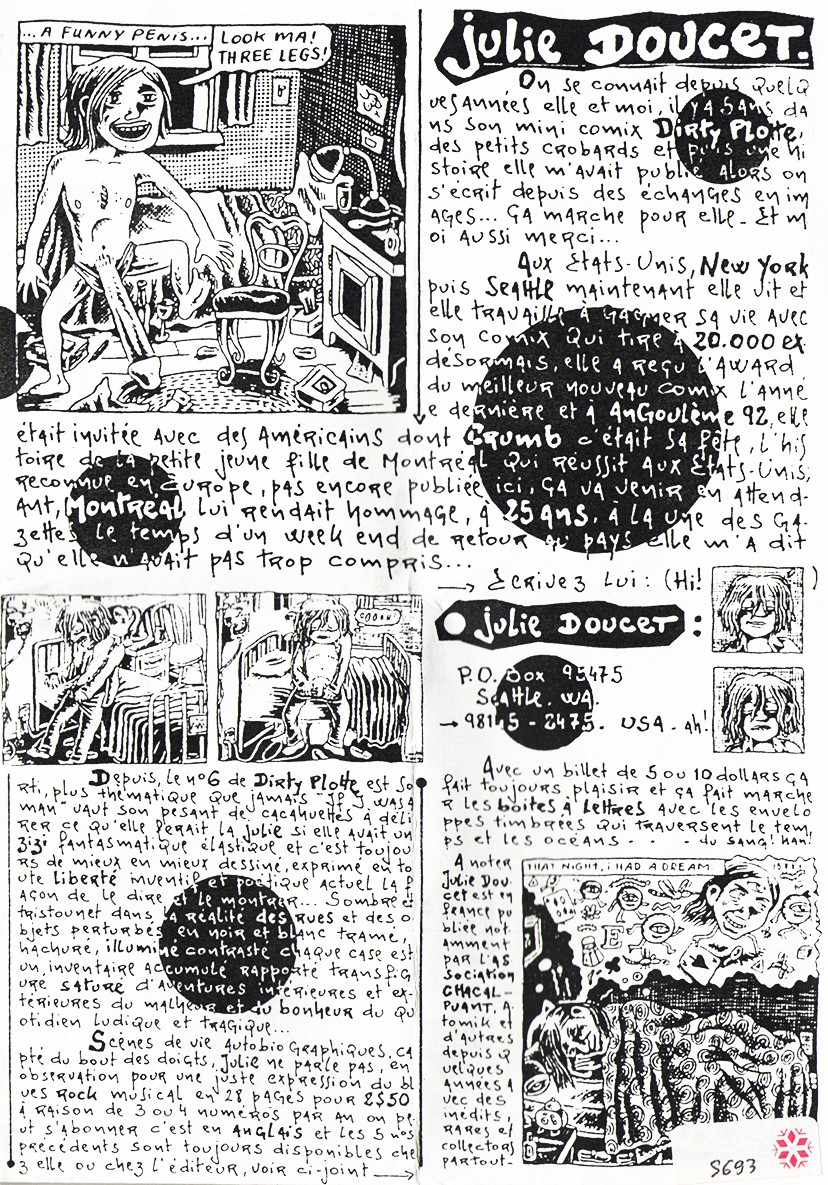 ...A FUNNY PENIS...
LOOK MA!
THREE LEGS!
julie DOUCET.
On se connait depuis quelq
ues années elle et moi, il y a 5 ans da
ns son mini comix Dirty Plotte,
des petits crobards et puis une hi
stoire elle m'avait publié. Alors on
s'écrit depuis des échanges en im
ages... ça marche pour elle - Et m
oi aussi merci...
Aux Etats-Unis, New York
puis Seattle maintenant elle vit et
elle travaille à gagner sa vie avec
son comix qui tire à 20.000 ex.
désormais, elle a reçu l'award
du meilleur nouveau comix l'anné
e dernière et à Angoulème 92, elle
était invitée avec des Américains dont Crumb c'était sa fête, l'his
toire de la petite jeune fille de Montréal qui réussit aux Etats-Unis,
reconnue en Europe, pas encore publiée ici, ça va venir en attend-
ant, Montréal lui rendait hommage, à 25 ans, à la une des ga-
zettes le temps d'un week end de retour au pays elle m'a dit
qu'elle n'avait pas trop compris...
→ Ecrivez lui : (Hi! )
julie Doucet :
P.O. Box 95475
Seattle. WA.
→ 98145 - 2475. USA. ah!
Depuis, le n°6 de Dirty Plotte est so
rti, plus thématique que jamais "If I was a
man" vaut son pesant de cacahuettes à déli
rer ce qu'elle ferait la julie si elle avait un
zizi fantasmatique élastique et c'est toujou
rs de mieux en mieux dessiné, exprimé en to
ute liberté inventif et poétique actuel la f
açon de le dire et le montrer... Sombre et
tristounet dans la réalité des rues et des o
bjets perturbés en noir et blanc tramé,
hachuré, illuminé contrasté chaque case est
un inventaire accumulé rapporté transfig
uré saturé d'aventures intérieures et ex-
térieures du malheur et du bonheur du qu
otidien ludique et tragique...
Scènes de vie autobiographiques, ca
pté du bout des doigts, Julie ne parle pas, en
observation pour une juste expression du bl
ues Rock musical en 28 pages pour 2$50
à raison de 3 ou 4 numéros par an on pe
ut s'abonner c'est en anglais et les 5 nos
précédents sont toujours disponibles che
z elle ou chez l'éditeur, voir ci-joint →
Avec un billet de 5 ou 10 dollars ça
fait toujours plaisir et ça fait marche
r les boites à lettres avec les envelo
ppes timbrées qui traversent le tem
ps et les océans - - - du sang! han!
A noter
Julie Dou-
cet est en
France pu
bliée not
amment
par l'as
sociation
CHACAL-
PUANT, A-
tomik et
d'autres
depuis q
uelques
années a
vec des
inédits,
rares et
collectors
partout-
THAT NIGHT, I HAD A DREAM
S693